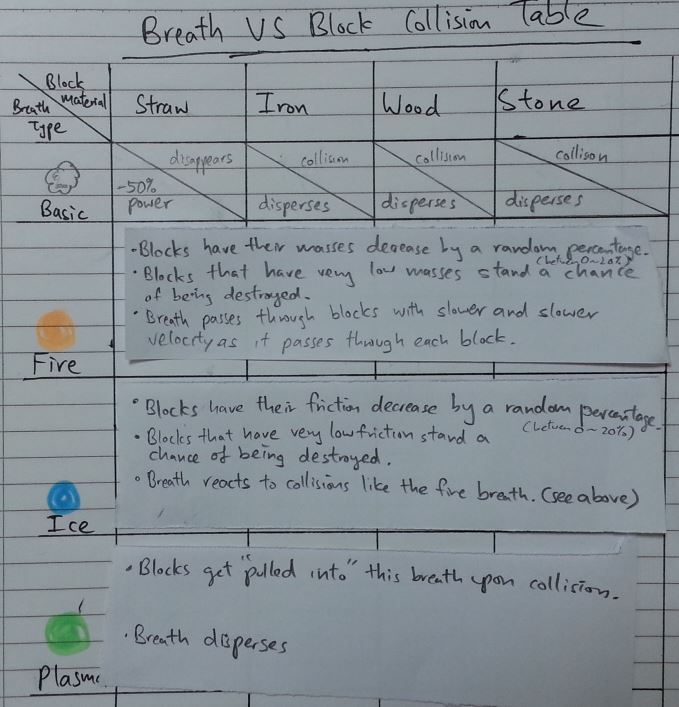 Breath VS Block Collision Table
Block Material
Breath Type
Straw
Iron
Wood
Stone
Basic
disappears
-50% power
collision
disperses
collision
disperses
collison
disperses
Fire
• Blocks have their masses decrease by a random percentage.
(between 0~20%)
• Blocks that have very low masses stand a chance
of being destroyed.
• Breath passes through blocks with slower and slower
velocity as it passes through each block.
Ice
• Blocks have their friction decrease by a random percentage.
(between 0~20%)
• Blocks that have very low friction stand a
chance of being destroyed.
• Breath reacts to collisions like the fire breath. (see above)
Plasma
• Blocks get "pulled into" this breath upon collision.
• Breath disperses